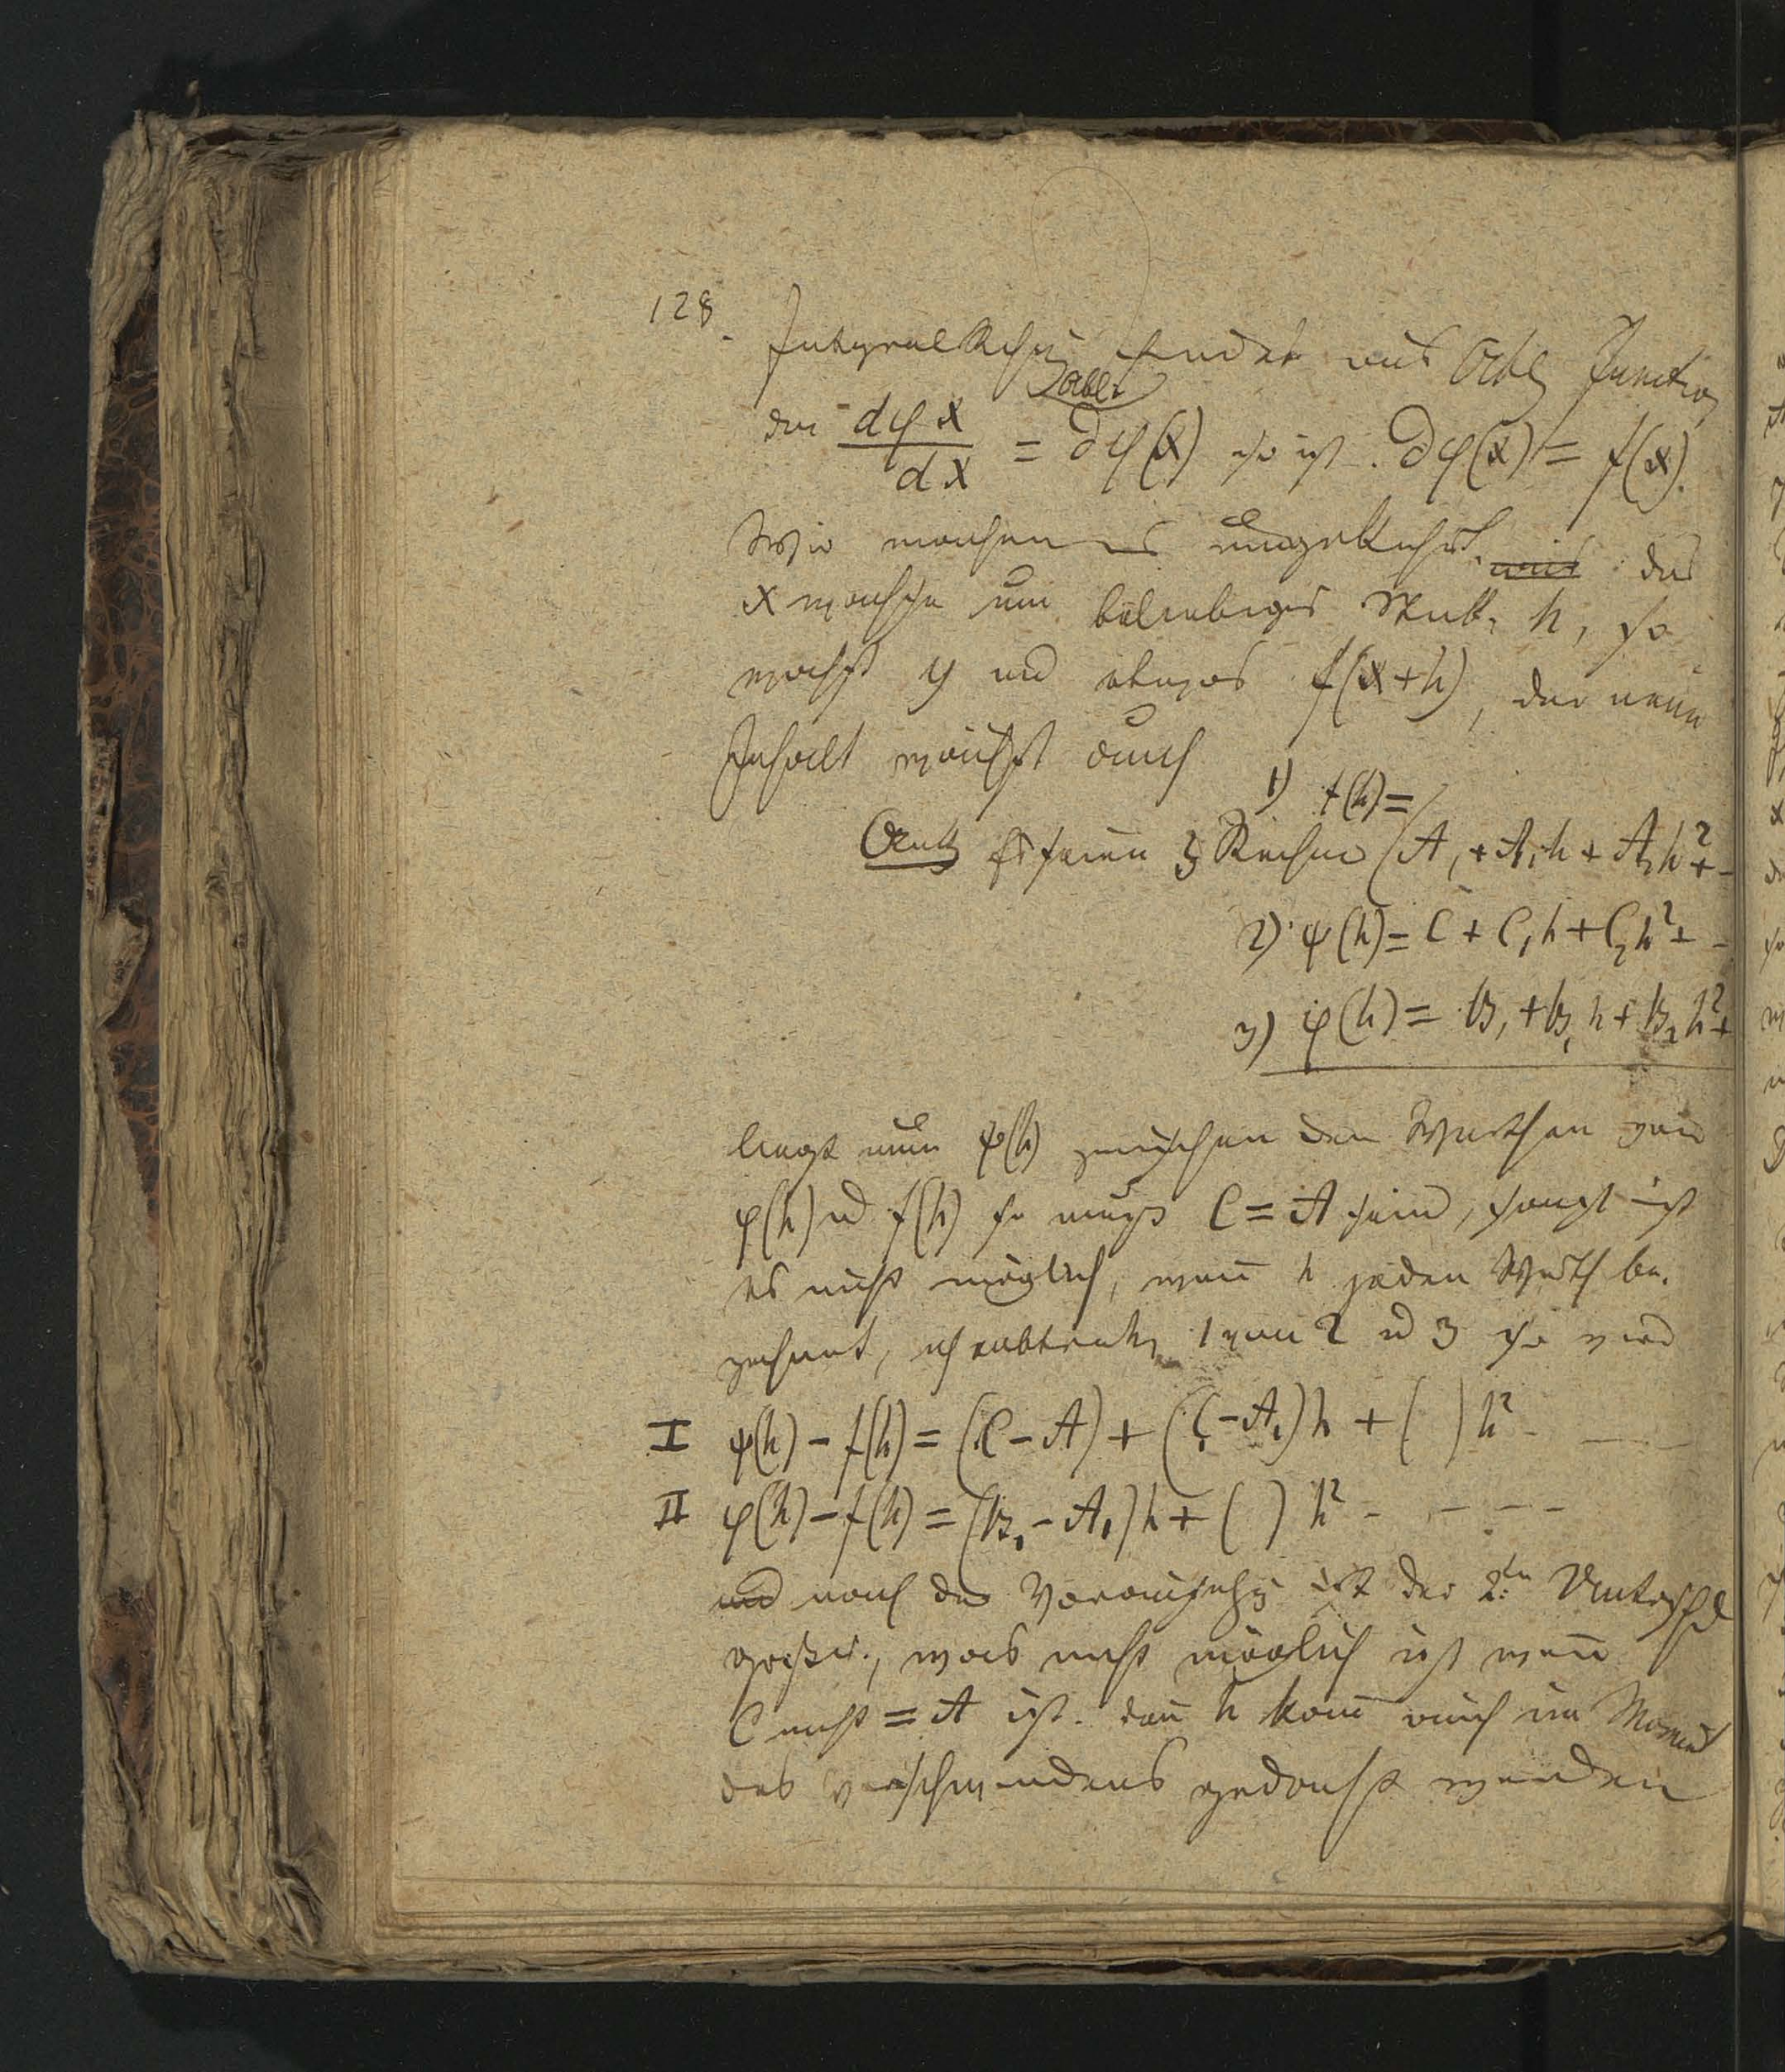 128. Integralrechg findet aus Abltg Function
Ablt
der dφx/dx = ∂φ(x) so ist ∂φ(x) = f(x).
Wir machen es umgekehrt. das
x wachse um beliebiges Stück h, so
wächst y und etwas f(x+h), der neue
Inhalt wächst durch
1) f(h)=
Es seien 3 Reihen A, + A, h + A₂h²+
2) ψ(h) = C + C, h + C₂h² +
3) φ(h) = B, + B, h + B₂h²+
liegt nun ψ(h) zwischen den Werthen von
φ(h) u f(h) so muß C = A sein, sonst ist
es nicht möglich, wenn h jeden Werth be.
zeichnet, subtrah 1 von 2 u 3 so wird
I ψ(h) – f(h) = (C – A) + (C, – A₁)h + ( ) h² –
II φ(h) – f(h) = (B₁ – A₁)h + ( ) h² – – – –
und nach der Voraussetzg ist der 2te Untersch
größer, was nicht möglich ist wenn
C nicht = A ist. denn h kann auch im Moment
des verschwindens gedacht werden